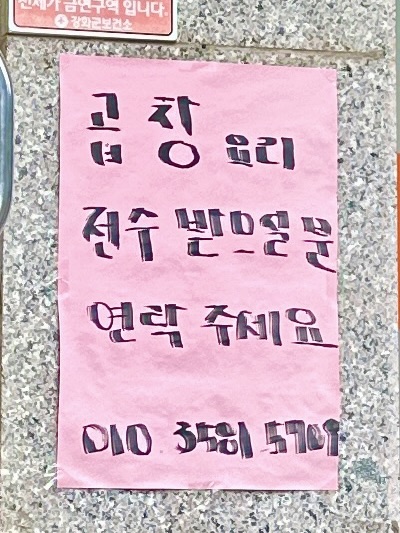 전체가 금연구역 입니다.
강화군보건소
곱창 요리
전수 받으실 분
연락 주세요
010 3581 5709